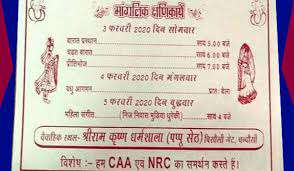 मांगलिक क्षणिकायें
3 फरवरी 2020 दिन सोमवार
बारात प्रस्थान सायं 5.00 बजे
चढ़त बारात सायं 6.00 बजे
प्रीतिभोज सायं 7.00 बजे
4 फरवरी 2020 दिन मंगलवार
वधु आगमन प्रातः बेला
5 फरवरी 2020 दिन बुद्धवार
महिला संगीत (निज निवास मुड़िया धुरेकी) सायं 4 बजे
वैवाहिक स्थल- श्रीराम कृष्ण धर्मशाला (पप्पू सेठ) बिसौली गेट, चन्दौसी
विशेष :- हम CAA एवं NRC का समर्थन करते हैं।